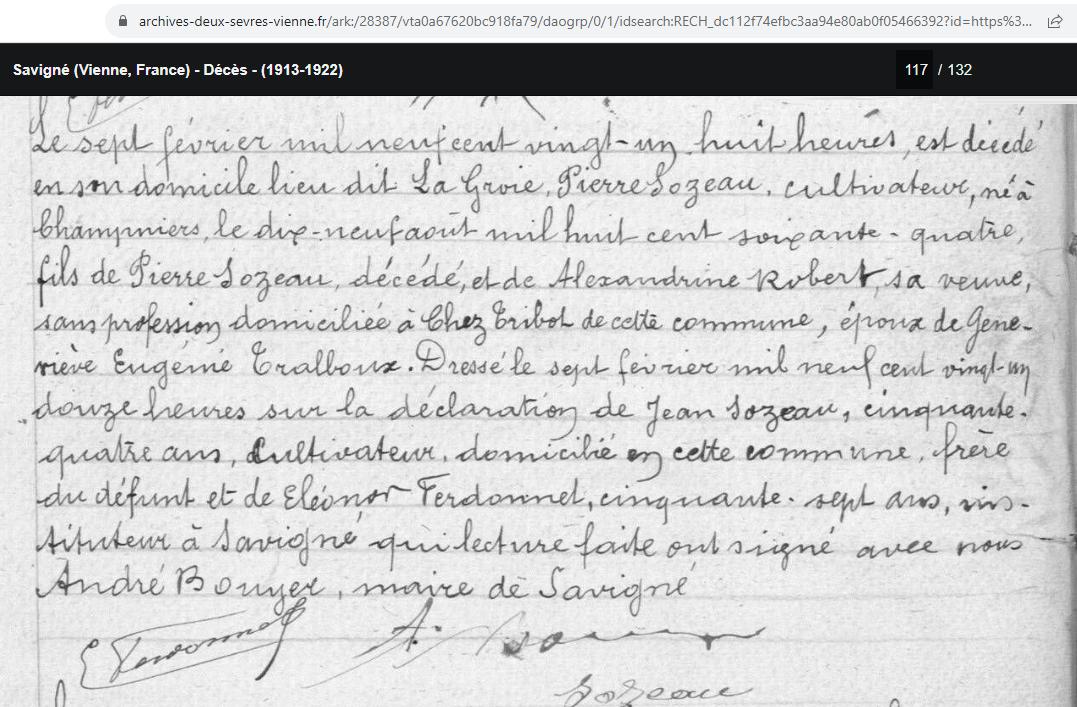 archives-deux-sevres-vienne.fr/ark:/28387/vta0a67620bc918fa79/daogrp/0/1/idsearch:RECH_dc112f74efbc3aa94e80ab0f05466392?id=https%3...
Savigné (Vienne, France) - Décès - (1913-1922)
117 / 132
Le sept février mil neuf cent vingt-un huit heures, est décédé
en son domicile lieu dit La Groie, Pierre Sozeau, cultivateur, né à
Champniers, le dix-neuf août mil huit cent soixante-quatre,
fils de Pierre Sozeau, décédé, et de Alexandrine Robert, sa veuve,
sans profession domiciliée à Chez Tribot de cette commune, époux de Gene-
viève Eugénie Tralboux. Dressé le sept février mil neuf cent vingt-un
douze heures sur la déclaration de Jean Sozeau, cinquante-
quatre ans, Cultivateur, domicilié en cette commune, frère
du défunt et de Eléonor Ferdonnet, cinquante-sept ans, ins-
tituteur à Savigné qui lecture faite ont signé avec nous
André Bouyer, maire de Savigné
Sozeau